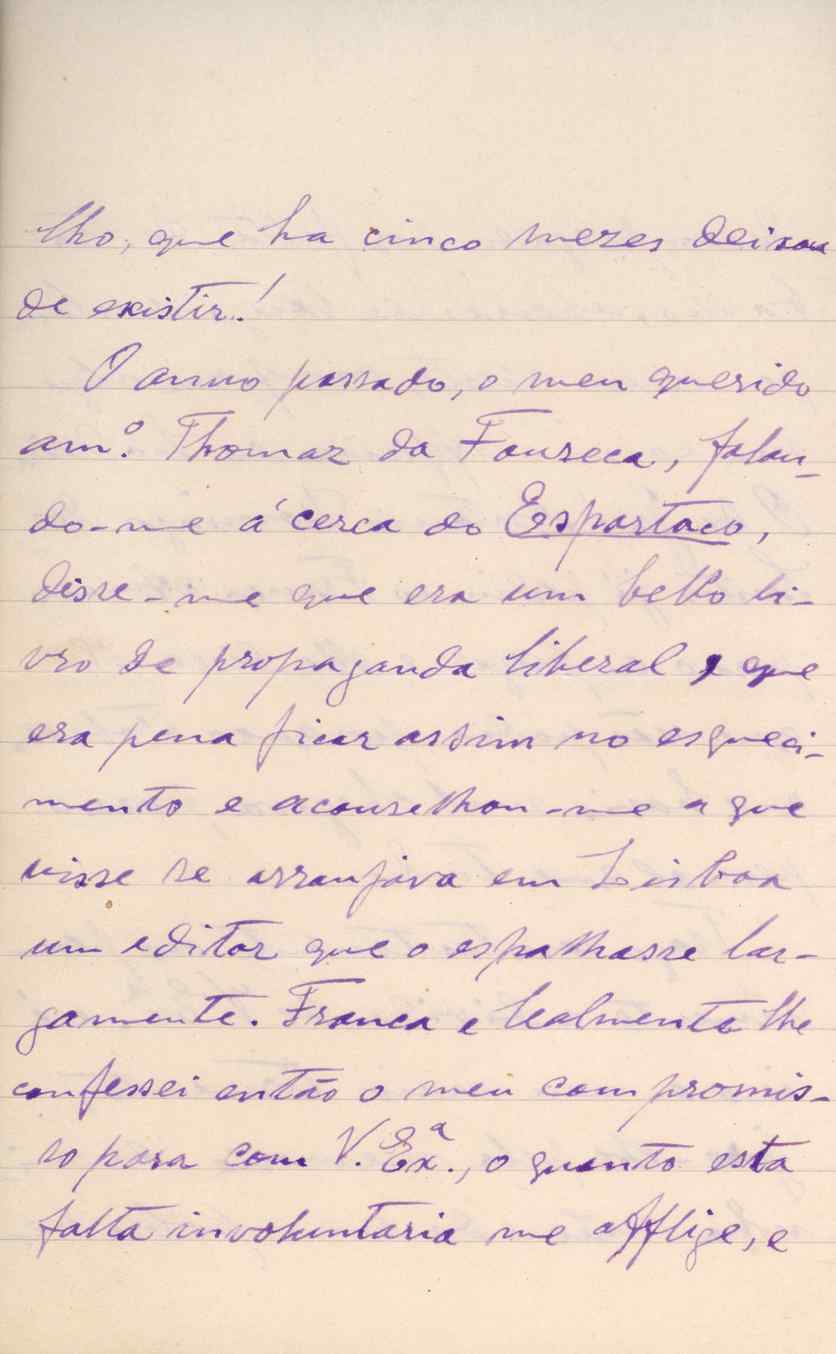 lho, que ha cinco mezes deixou
de existir!
O anno passado, o meu querido
am.º Thomaz da Fonseca, falan-
do-me á cerca do Espartaco,
disse-me que era um bello li-
vro de propaganda liberal, que
era pena ficar assim no esqueci-
mento e aconselhou-me a que
visse se arranjava em Lisboa
um editor que o espalhasse lar-
gamente. Franca e lealmente lhe
confessei então o meu compromis-
so para com V. Ex.ª, o quanto esta
falta involuntaria me afflige, e